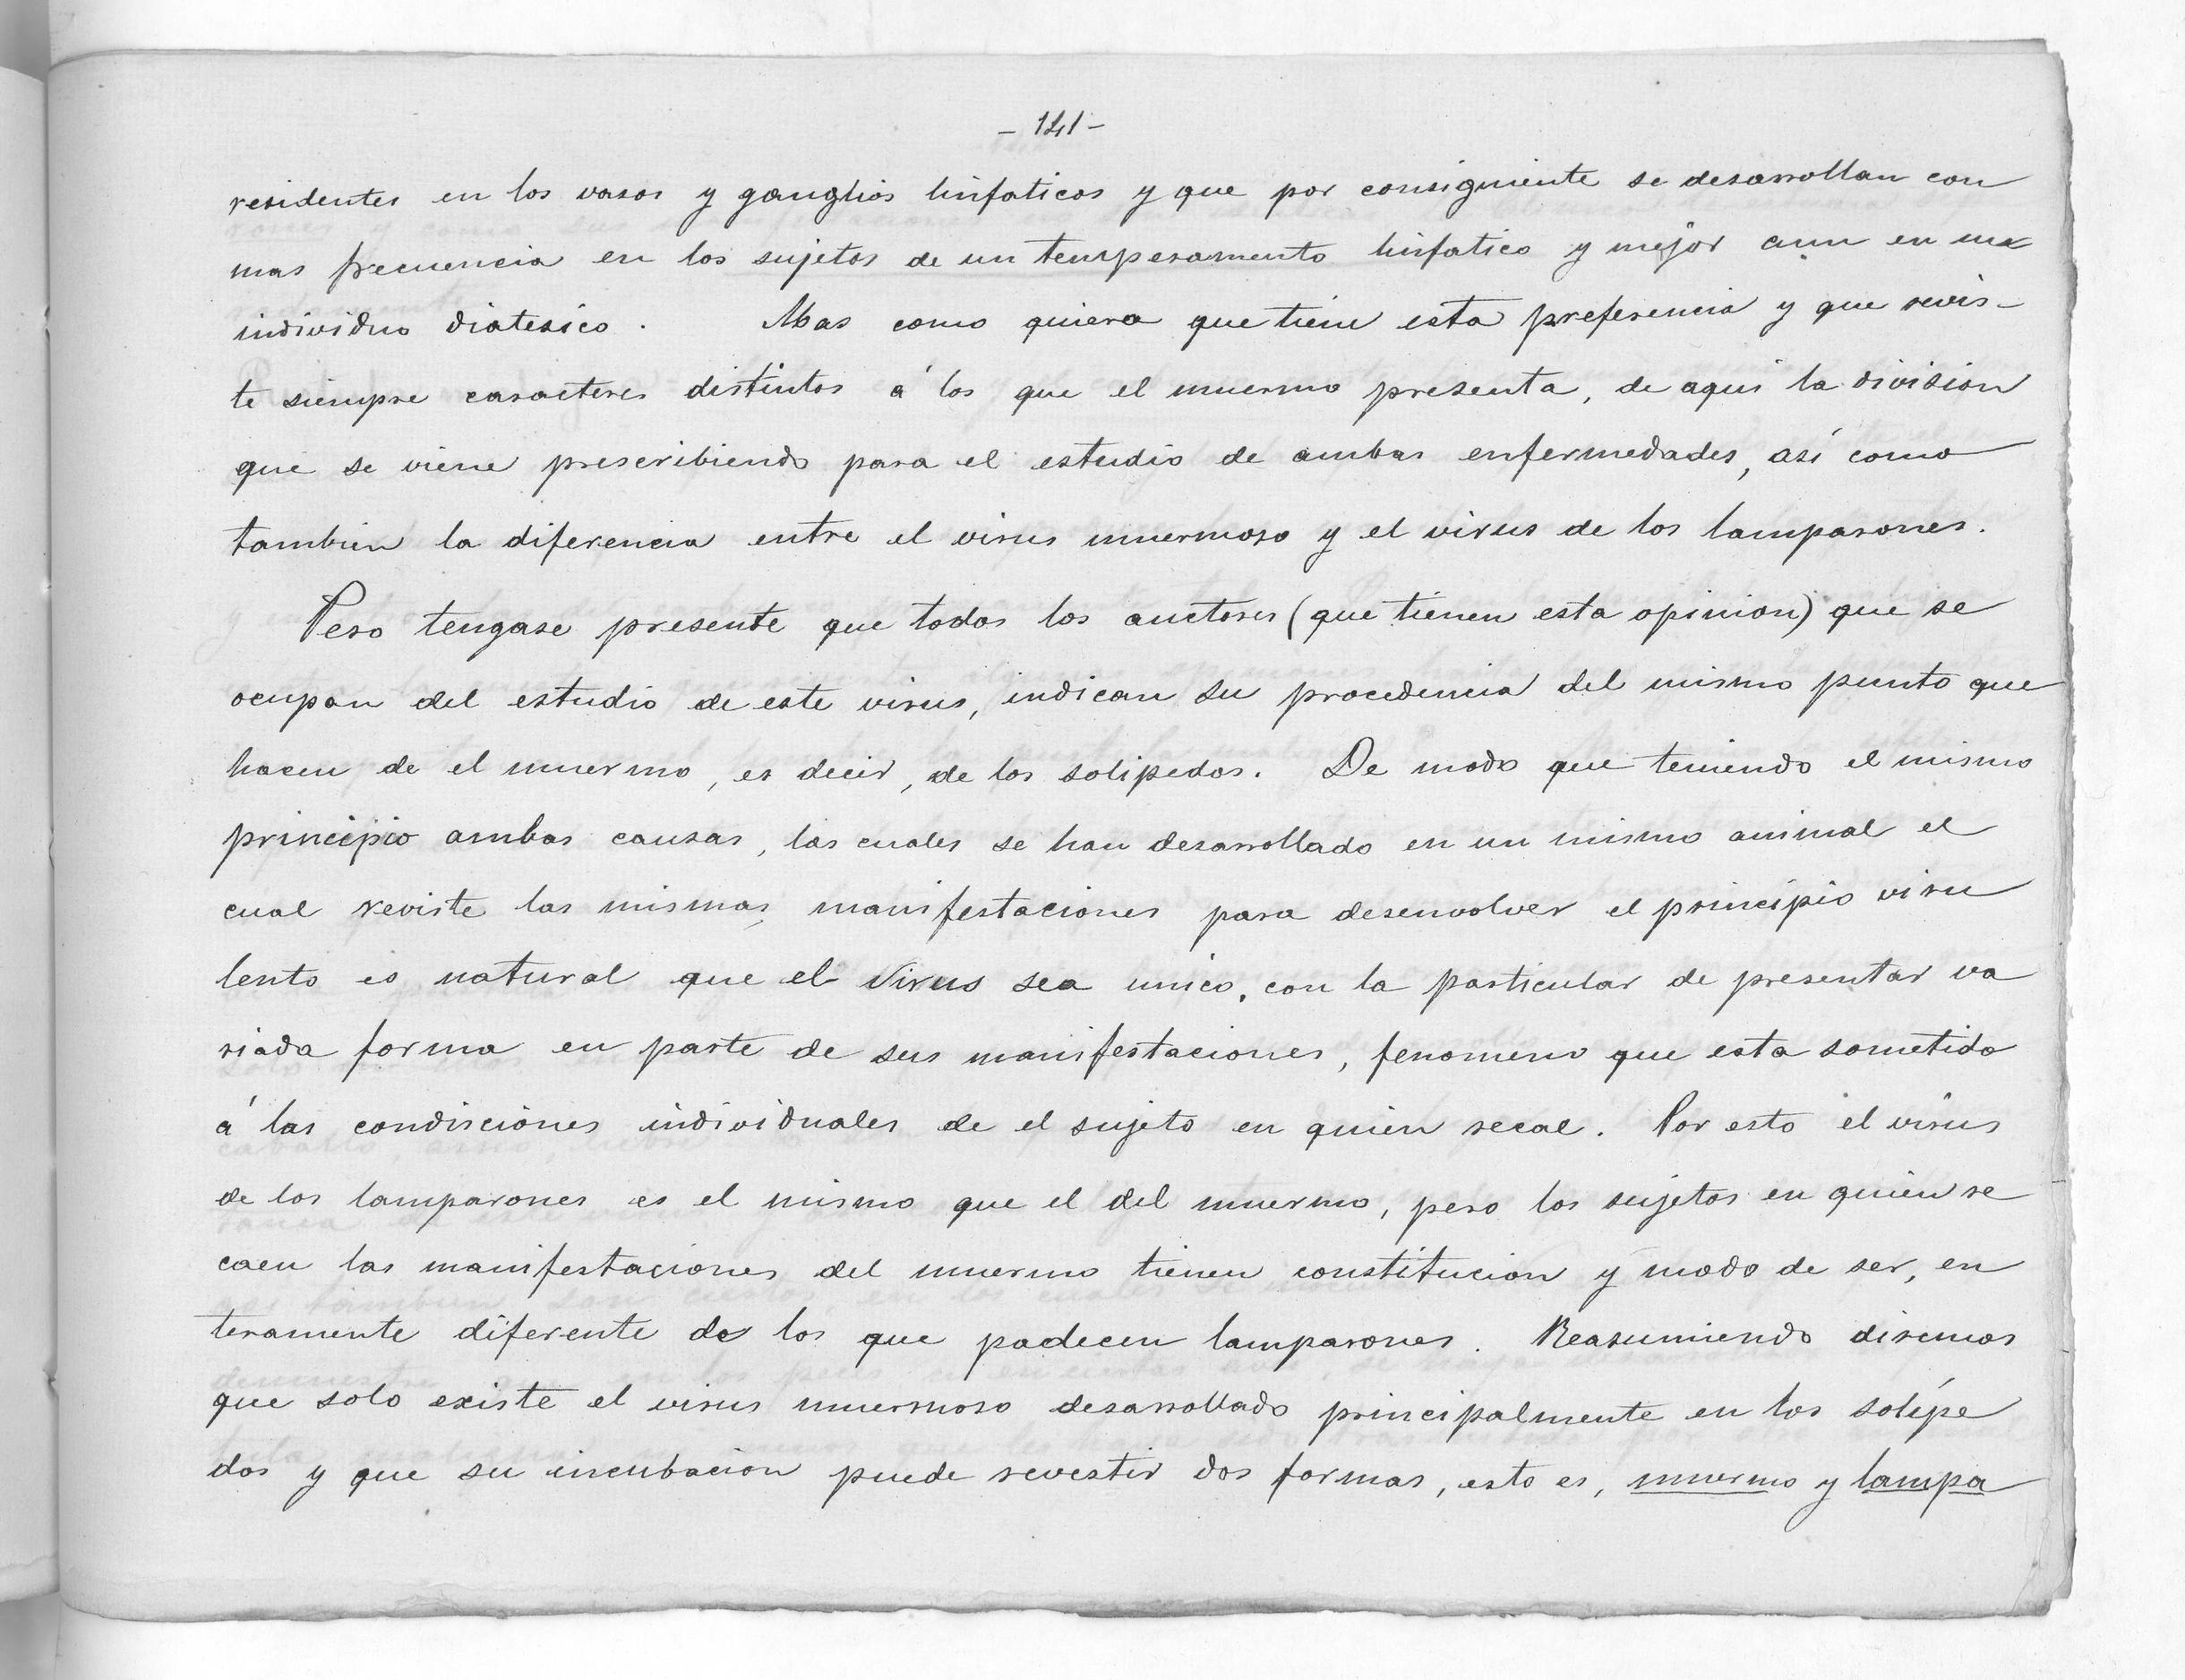 - 141 -
residentes en los vasos y ganglios linfaticos y que por consiguiente se desarrollan con
mas frecuencia en los sujetos de un temperamento linfatico y mejor aun en un
individuo diatesico. Mas como quiera que tiene esta preferencia y que revis-
te siempre caracteres distintos á los que el muermo presenta, de aqui la division
que se viene prescribiendo para el estudio de ambas enfermedades, así como
tambien la diferencia entre el virus muermoso y el virus de los lamparones.
Pero tengase presente que todos los auctores (que tienen esta opinion) que se
ocupan del estudio de este virus, indican su procedencia del mismo punto que
hacen de el muermo, es decir, de los solipedos. De modo que teniendo el mismo
principio ambas causas, las cuales se han desarrollado en un mismo animal el
cual reviste las mismas manifestaciones para desenvolver el principio viru
lento es natural que el virus sea unico, con la particular de presentar va
riada forma en parte de sus manifestaciones, fenomeno que esta sometido
á las condisciones individuales de el sujeto en quien recae. Por esto el virus
de los lamparones es el mismo que el del muermo, pero los sujetos en quien re
caen las manifestaciones del muermo tienen constitucion y modo de ser, en
teramente diferente de los que padecen lamparones. Reasumiendo diremos
que solo existe el virus muermoso desarrollado principalmente en los solípe
dos y que su incubacion puede revestir dos formas, esto es, muermo y lampa